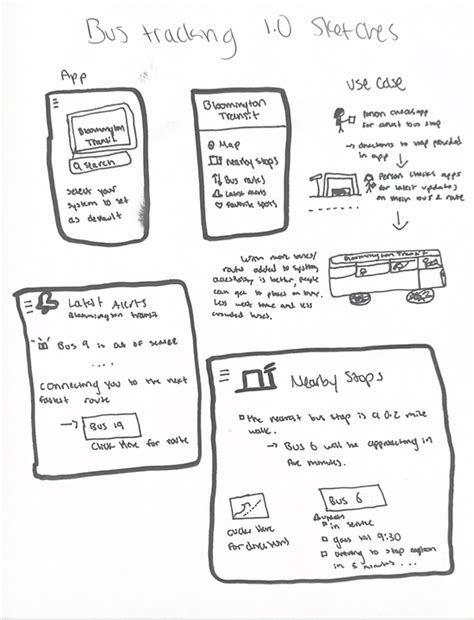 Bus tracking 1.0 Sketches
App
Bloomington
Transit
Search
select your
system to set
as default
Bloomington
Transit
Map
Nearby Stops
Bus routes
Latest Alerts
Favorite spots
USE CASE
Person checks app
for bus stop
→ directions to stop provided
in app
Person checks apps
for latest updates
on bus & route
With more buses/
routes added to system
accessibility is better, people
can get to places on time,
less wait time and less
crowded buses.
Bloomington Transit
Latest Alerts
Bloomington transit
Bus 9 is out of service
....
Connecting you to the next
fastest route
→ Bus 19
Click Here for route
Nearby Stops
the nearest bus stop is a 0.2 mile
walk.
→ Bus 6 will be approaching in
five minutes.
Click Here
for directions
Bus 6
in service
goes til 9:30
arriving to stop
in 5 minutes...